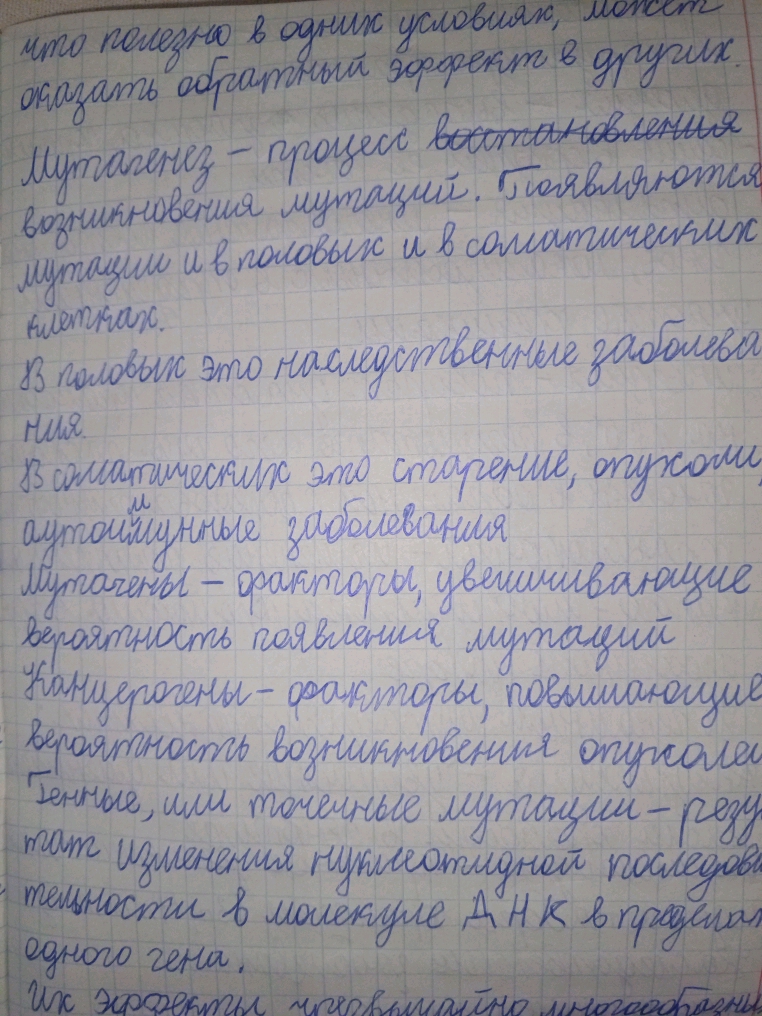 что полезно в одних условиях, может
оказать обратный эффект в других.
Мутагенез – процесс восстановления
возникновения мутаций. Появляются
мутации и в половых и в соматических
клетках.
В половых это наследственные заболева
ния.
В соматических это старение, опухоли,
аутоиммунные заболевания
Мутагены – факторы, увеличивающие
вероятность появления мутаций
Канцерогены – факторы, повышающие
вероятность возникновения опухолей
Генные, или точечные мутации – резу
тат изменения нуклеотидной последова
тельности в молекуле ДНК в пределах
одного гена.
Их эффекты чрезвычайно многообразны